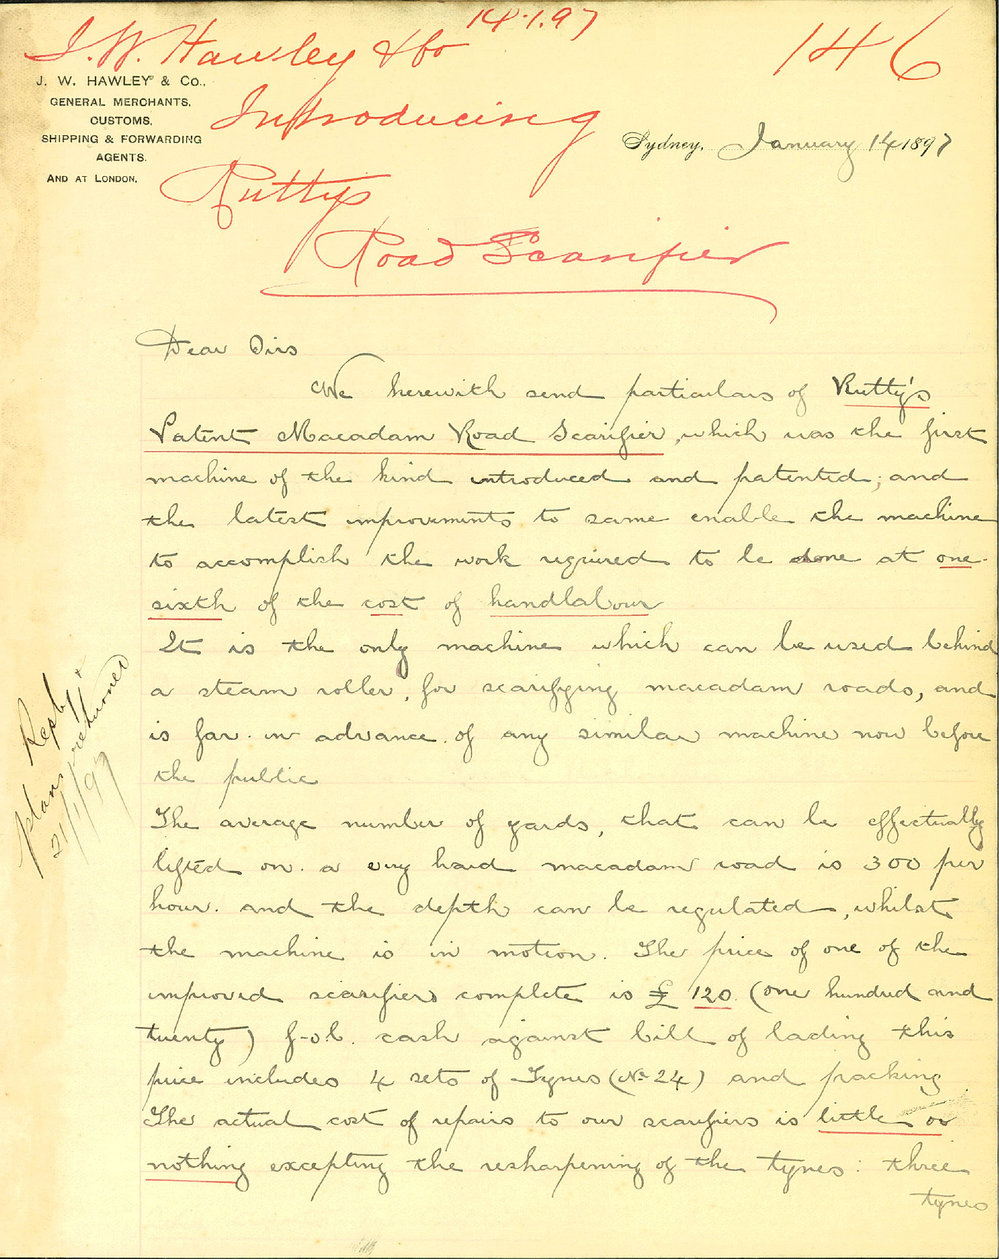 14.1.97
146
J. W. Hawley & Co
Introducing
Rutty's
Road Scarifier
J. W. HAWLEY & Co.,
GENERAL MERCHANTS,
CUSTOMS,
SHIPPING & FORWARDING
AGENTS.
AND AT LONDON.
Sydney, January 14 1897
Dear Sirs
We herewith send particulars of Rutty's
Patent Macadam Road Scarifier, which was the first
machine of the kind introduced and patented; and
the latest improvements to same enable the machine
to accomplish the work required to be done at one-
sixth of the cost of handlabour
It is the only machine which can be used behind
a steam roller, for scarifying macadam roads, and
is far in advance of any similar machine now before
the public
The average number of yards, that can be effectually
lifted on a very hard macadam road is 300 per
hour. and the depth can be regulated, whilst
the machine is in motion. The price of one of the
improved scarifiers complete is £120. (one hundred and
twenty) f.o.b. cash against bill of lading this
price includes 4 sets of Tynes (No 24) and packing
The actual cost of repairs to our scarifiers is little or
nothing excepting the resharpening of the tynes: three
tynes
Repd &
plans returned
21/1/97